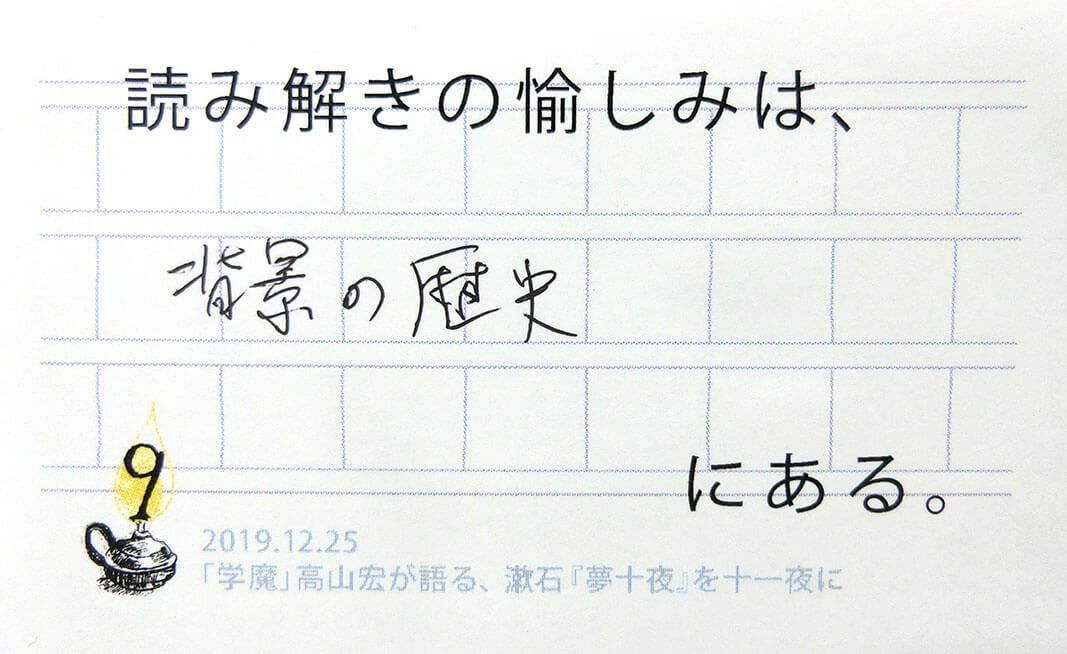 読み解きの愉しみは、
背景の歴史
にある。
9
2019.12.25
「学魔」高山宏が語る、漱石『夢十夜』を十一夜に